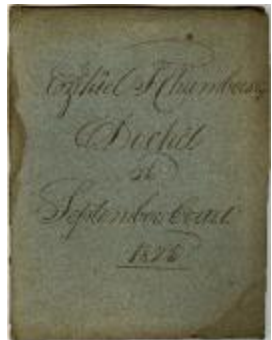 Ezekiel F Chambers
Docket
September Court
1826